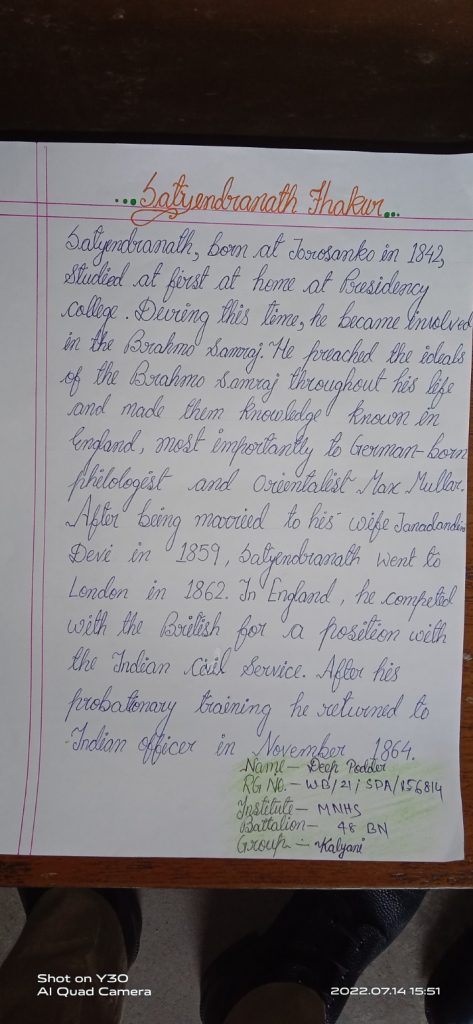 ...Satyendranath Thakur...
Satyendranath, born at Jorosanko in 1842,
studied at first at home at Presidency
college. During this time, he became involved
in the Brahmo Samraj. He preached the ideals
of the Brahmo Samraj throughout his life
and made them knowledge known in
England, most importantly to German-born
philologist and Orientalist Max Mullar.
After being married to his wife Janadandini
Devi in 1859, Satyendranath went to
London in 1862. In England, he competed
with the British for a position with
the Indian Civil Service. After his
probationary training he returned to
Indian officer in November 1864.
Name - Deep Podder
RG No. - WB/21/SDA/156814
Institute - MNHS
Battalion - 48 BN
Group :- Kalyani
Shot on Y30
AI Quad Camera
2022.07.14 15:51